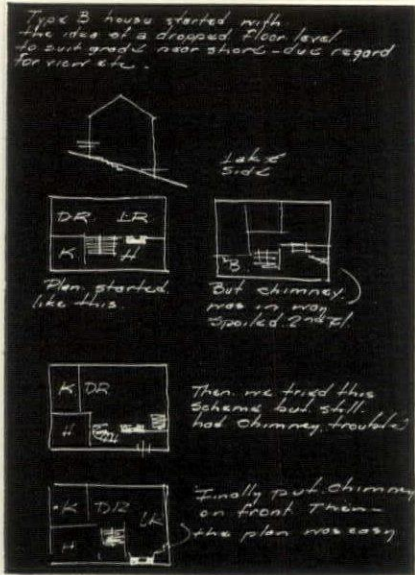 Type B house started with
the idea of a dropped floor level
to suit grade near shore - due regard
for view etc.
Lake
Side
DR. LR
K. H
Plan started
like this.
B.
But chimney
was in way
spoiled 2nd Fl.
K DR
H
Then we tried this
scheme but still
had chimney trouble
Finally put chimney
on front Then -
the plan was easy
K DR LR
H